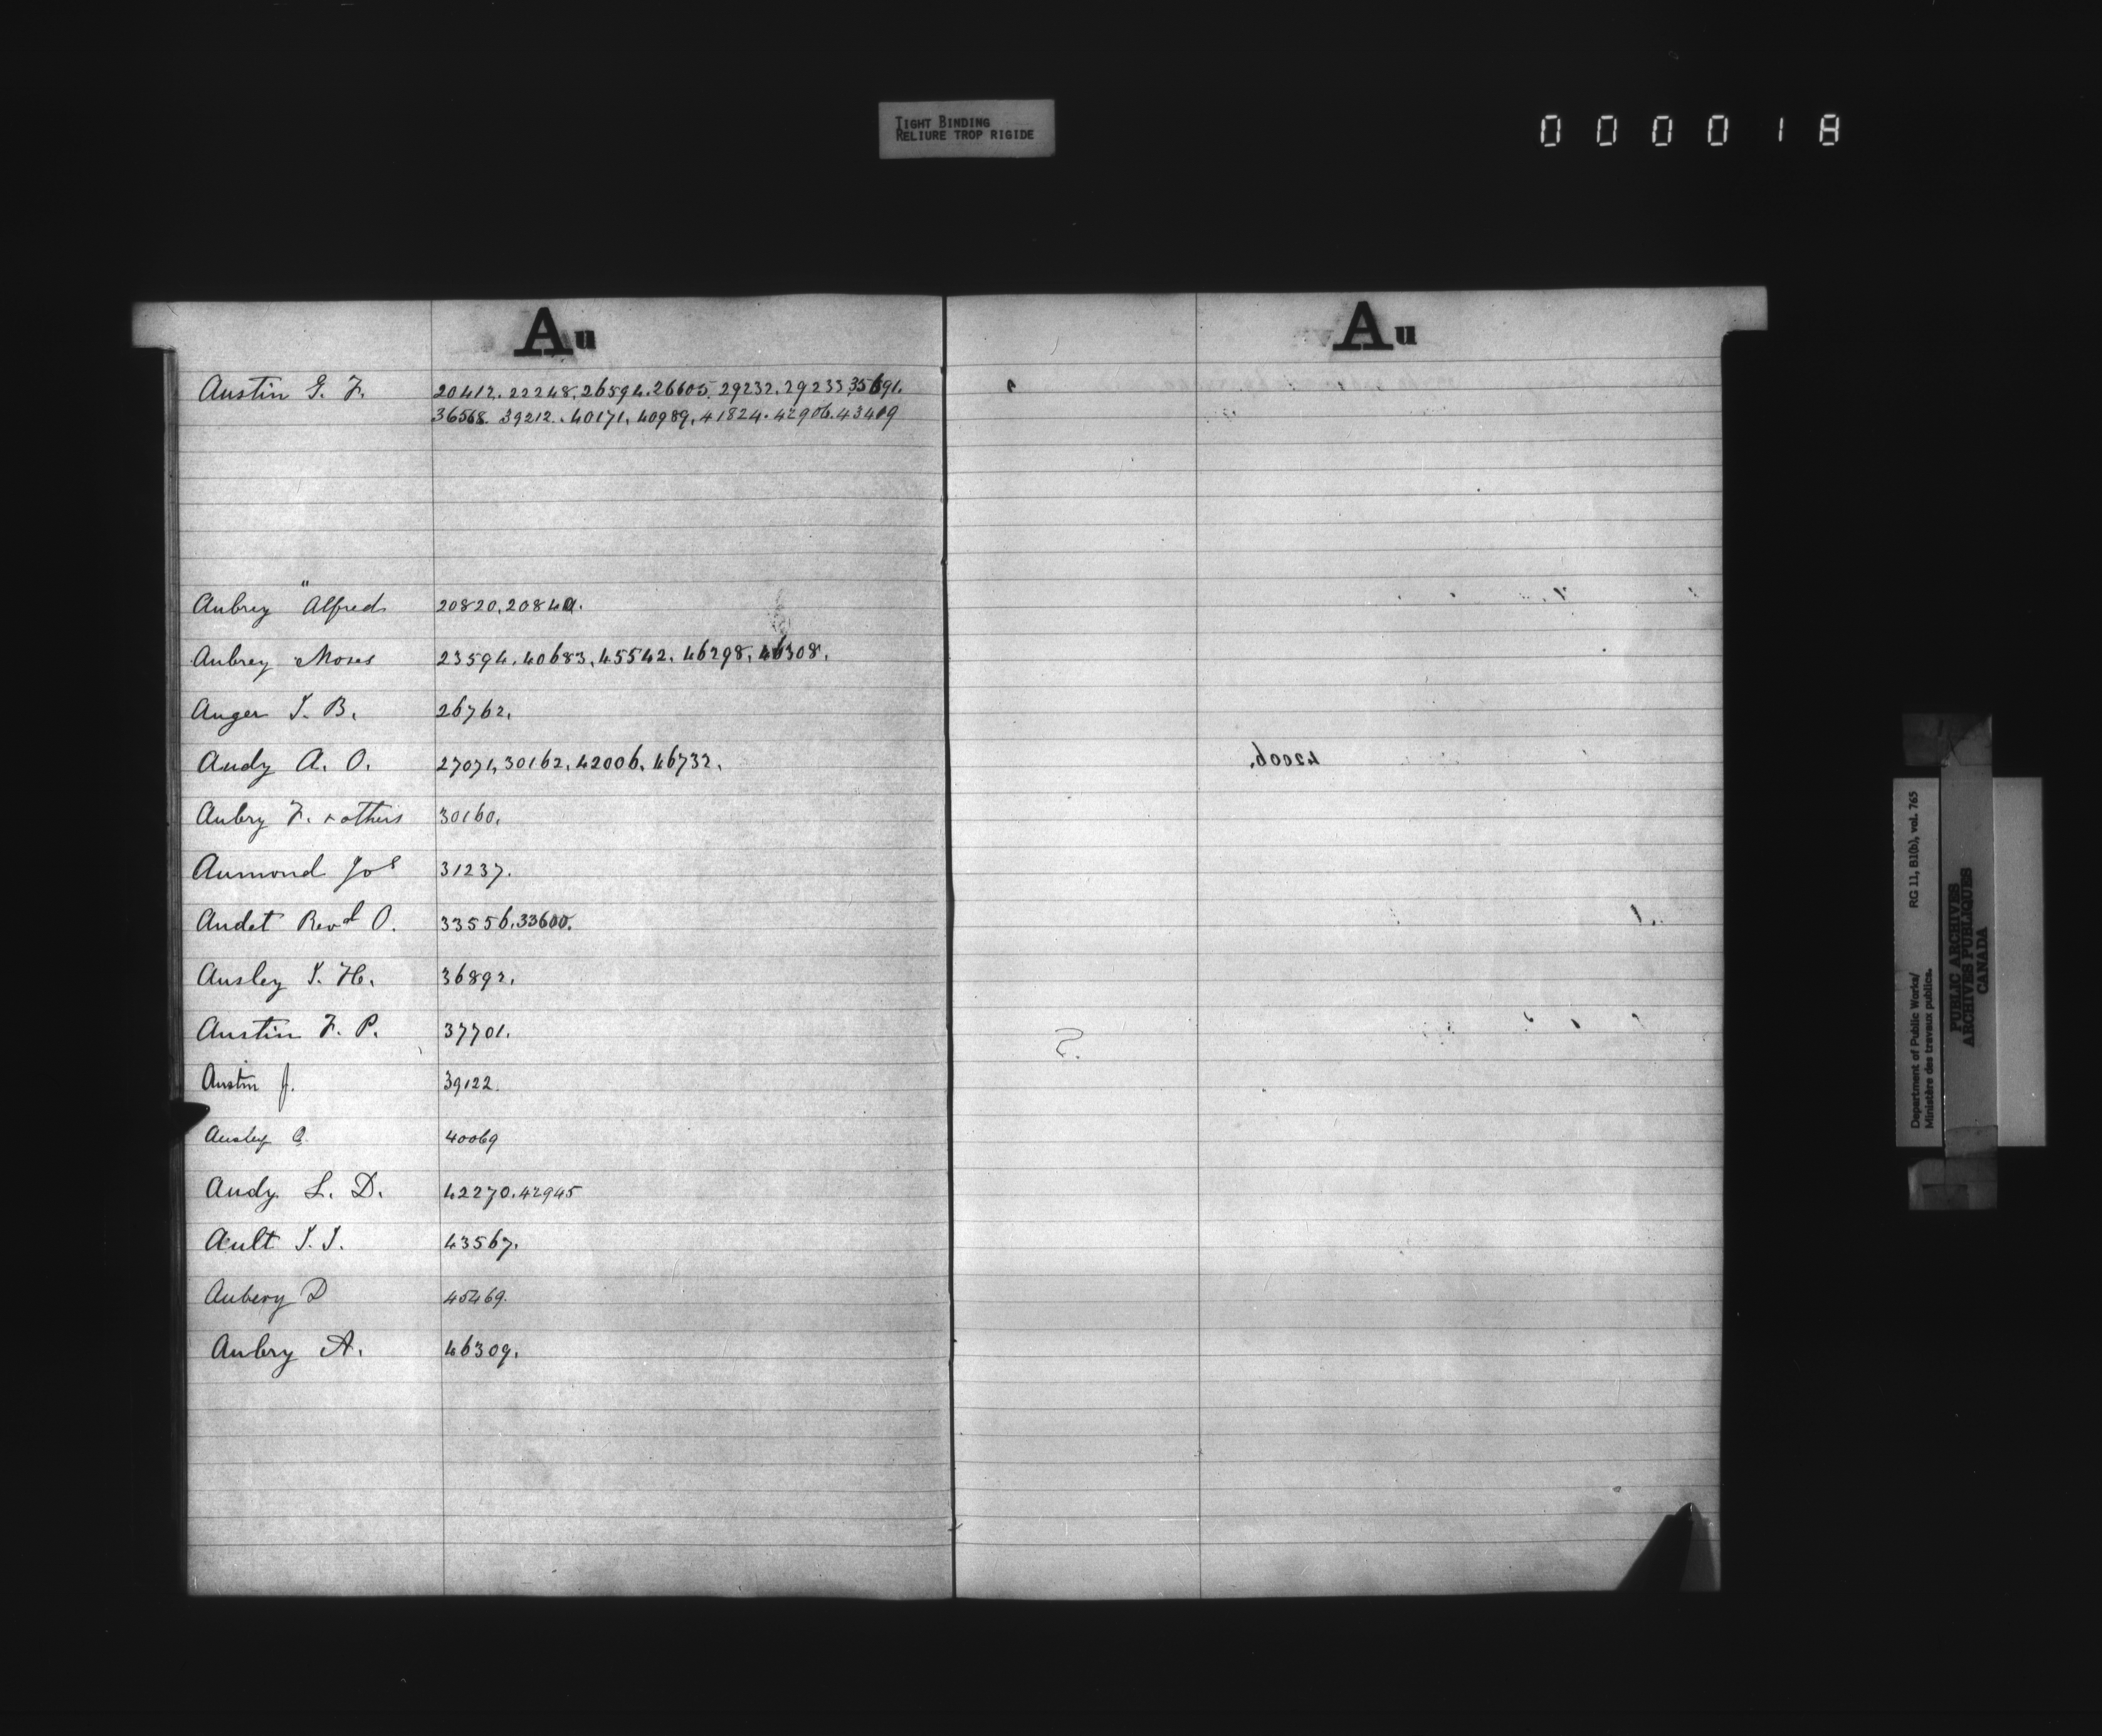 TIGHT BINDING
RELIURE TROP RIGIDE
000018
Au
Austin G. F. 20412. 22248. 26594. 26605. 29232. 29233 35691.
36568. 39212. 40171. 40989. 41824. 42906. 43419
"
Aubrey Alfred 20820, 20840.
Aubrey Moses 23594. 40683. 45542. 46298. 46308.
Auger J. B. 26762.
Audy A. O. 27071, 30162. 42006. 46732.
Aubry F. & others 30160.
Aumond Jos 31237.
Audet Revd O. 33556. 33600.
Ausley J. H. 36892.
Austin F. P. 37701.
Austin J. 39122.
Ausley 40069
Audy L. D. 42270. 42945
Ault J. J. 43567.
Aubery D 45469.
Aubry A. 46309.
Au
42006.
Department of Public Works/ RG 11, B1(b), vol. 765
Ministère des travaux publics.
PUBLIC ARCHIVES
ARCHIVES PUBLIQUES
CANADA